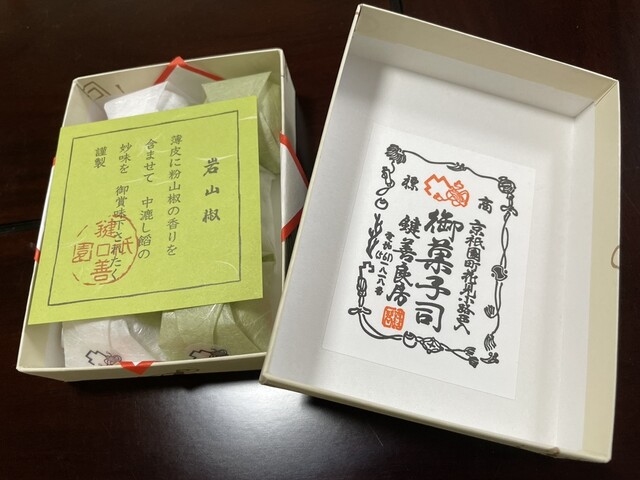 岩山椒
薄皮に粉山椒の香りを
含ませて 中漉し餡の
妙味を 御賞味下されたく
謹製
祇
鍵善
園
商
標
京祇園町花見小路西入
御菓子司
鍵善良房